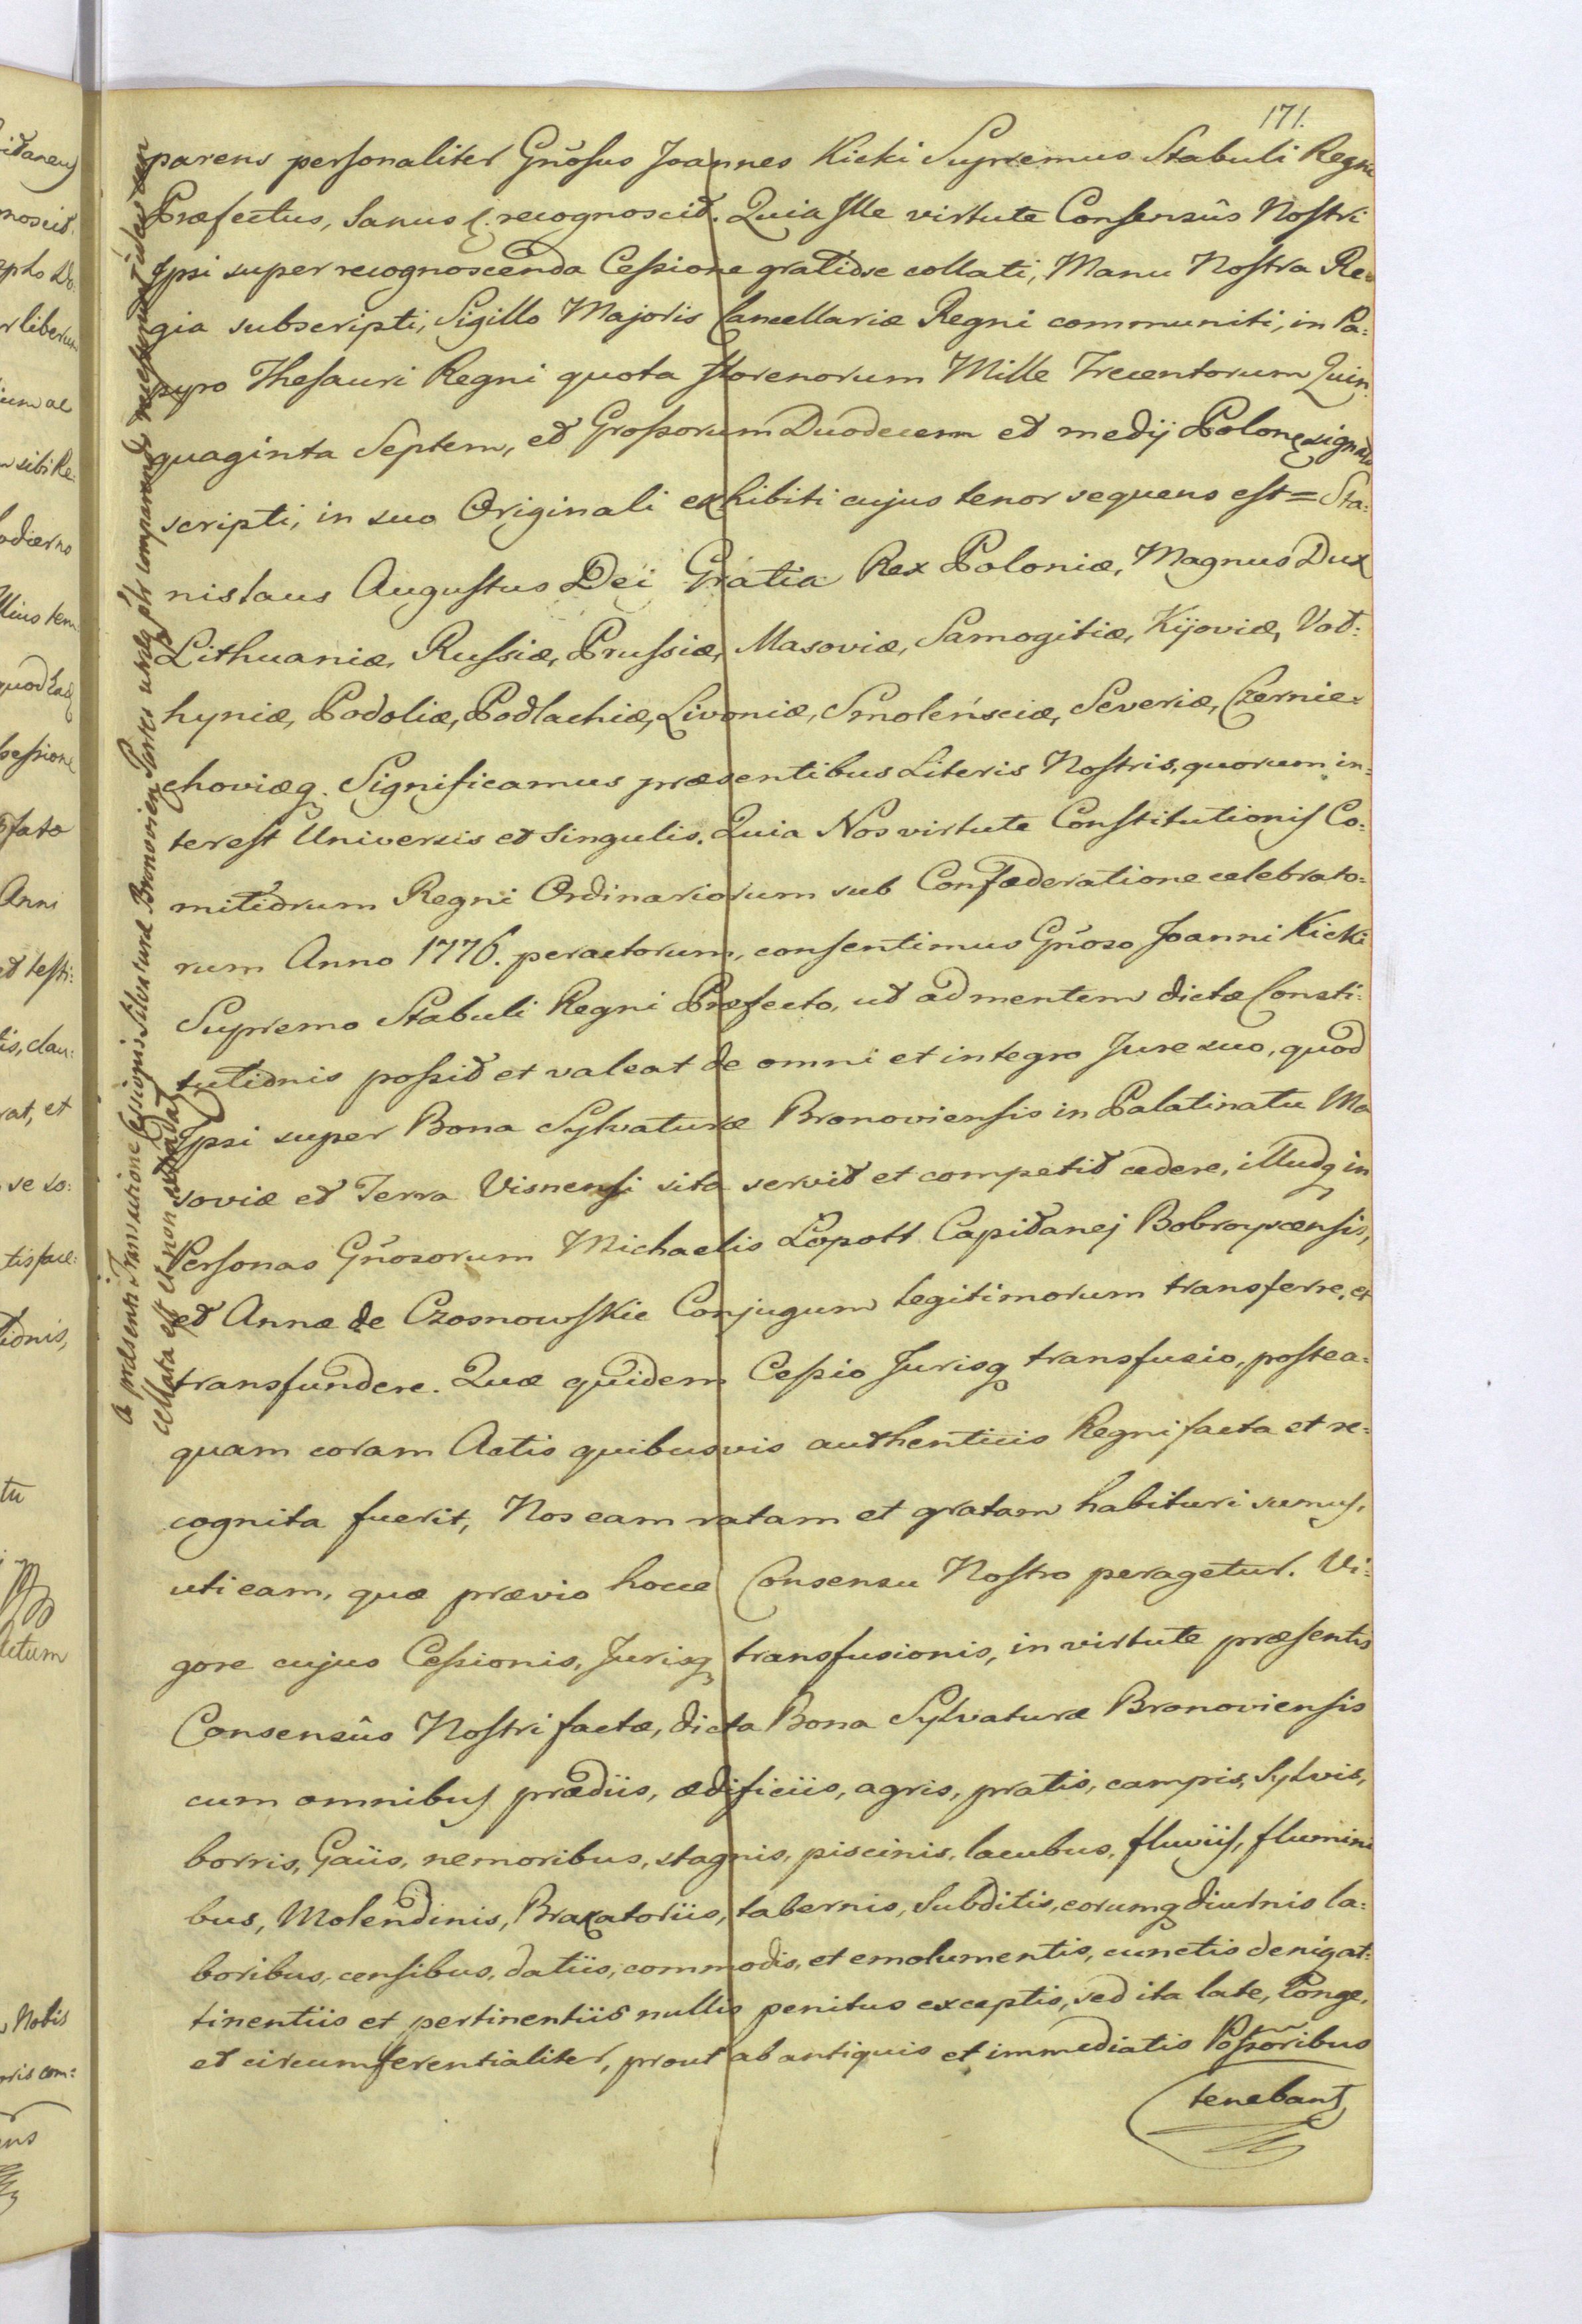 171.
parens personaliter Gñosus Joannes Kicki Supremus Stabuli Regni
Præfectus, sanus &. recognoscit. Quia Ille virtute Consensûs Nostri
Ipsi super recognoscenda Cessione gratiose collati, Manu Nostra Re-
gia subscripti, Sigillo Majoris Cancellariæ Regni communiti, in Pa:
pyro Thesauri Regni quota florenorum Mille Trecentorum Quin
quaginta Septem, et Grossorum Duodecem et medij Polonę signato
scripti, in suo Originali exhibiti cujus tenor sequens est = Sta:
nislaus Augustus Dei Gratia Rex Poloniæ, Magnus Dux
Lithuaniæ, Russiæ, Prussiæ, Masoviæ, Samogitiæ, Kijoviæ, Vol:
hyniæ, Podoliæ, Podlachiæ, Livoniæ, Smoleńsciæ, Severiæ, Czernie-
choviæq. Significamus præsentibus Literis Nostris, quorum in:
terest Universis et Singulis. Quia Nos virtute Constitutionis Co:
mitiorum Regni Ordinariorum sub Confæderatione celebrato:
rum Anno 1776. peractorum, consentimus Gñoso Joanni Kicki
Supremo Stabuli Regni Præfecto, ut ad mentem dictæ Consti:
tutionis possit et valeat de omni et integro Jure suo, quod
Ipsi super Bona Sylvaturæ Bronoviensis in Palatinatu Ma
soviæ et Terra Visnensi sita servit et competit cedere, illudq in
Personas Gñosorum Michaelis Łopott Capitanej Bobroycensis,
et Annæ de Czosnowskie Conjugum legitimorum transferre, et
transfundere. Quæ quidem Cessio Jurisq transfusio, postea:
quam coram Actis quibusvis authenticis Regni facta et re:
cognita fuerit, Nos eam ratam et gratam habituri sumus,
uti eam, quæ prævio hocce Consensu Nostro peragetur. Vi:
gore cujus Cessionis, Jurisq transfusionis, in virtute præsentis
Consensûs Nostri factæ, dicta Bona Sylvaturæ Bronoviensis
cum omnibus prædiis, ædificiis, agris, pratis, campis, Sylvis,
borris, Gaiis, nemoribus, stagnis, piscinis, lacubus, fluviis, flumini
bus, Molendinis, Braxatoriis, tabernis, Subditis, eorumq diurnis la:
boribus, censibus, datiis, commodis, et emolumentis, cunctis deniq at:
tinentiis et pertinentiis nullis penitus exceptis, sed ita late, longe,
et circumferentialiter, prout ab antiquis et immediatis Possoribus
tenebant
a præsenti Transactione Cessionis Silvaturæ Bronovien Partes
cellata est et non